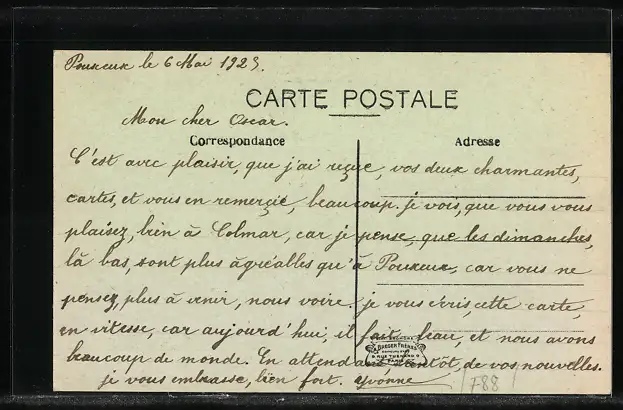 Pouxeux le 6 Mai 1923.
CARTE POSTALE
Mon cher Oscar.
Correspondance
Adresse
C'est avec plaisir, que j'ai reçue, vos deux charmantes,
cartes, et vous en remerçie, beaucoup. je vois, que vous vous
plaisez, bien à Colmar, car je pense, que les dimanches,
là bas, sont plus agréables qu'à Pouxeux, car vous ne
pensez, plus à venir, nous voire. je vous écris, cette carte,
en vitesse, car aujourd'hui, il fait, beau, et nous avons
beaucoup de monde. En attendant bientôt, de vos nouvelles.
je vous embrasse, bien fort. Yvonne
DREGER FRÈRES
PARIS
788